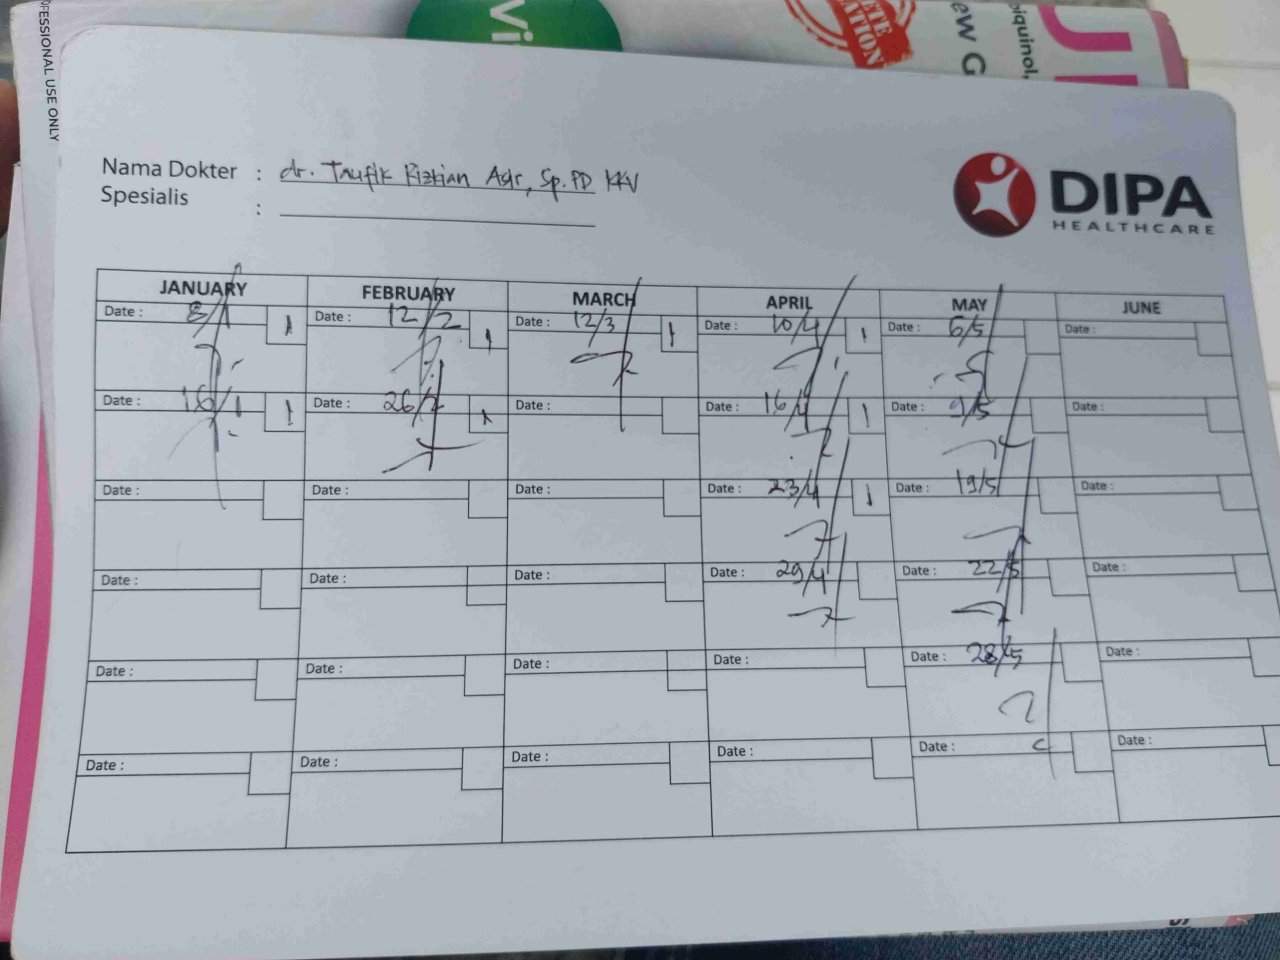 FESSIONAL USE ONLY
Vi
TE
ATION
ew G
biquinol,
Nama Dokter : dr. Taufik Rizkian Asir, Sp.PD KKV
Spesialis :
DIPA
HEALTHCARE
JANUARY FEBRUARY MARCH APRIL MAY JUNE
Date : 8/1 1 Date : 12/2 1 Date : 12/3 1 Date : 10/4 1 Date : 6/5 Date :
Date : 16/1 1 Date : 26/2 1 Date : Date : 16/4 1 Date : 9/5 Date :
Date : Date : Date : Date : 23/4 1 Date : 19/5 Date :
Date : Date : Date : Date : 29/4 Date : 22/5 Date :
Date : Date : Date : Date : Date : 28/5 Date :
Date : Date : Date : Date : Date : Date :